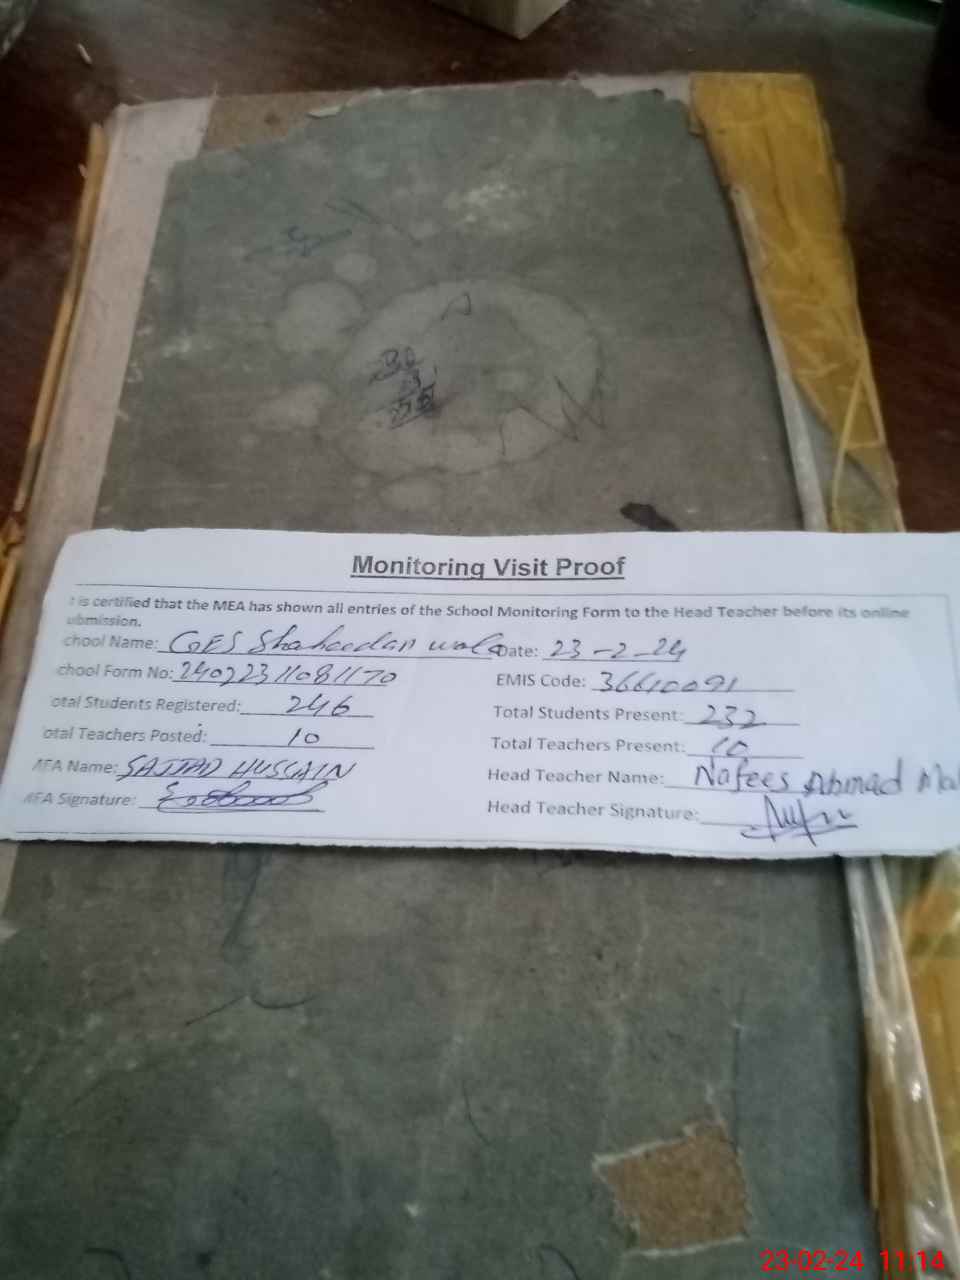 Monitoring Visit Proof
t is certified that the MEA has shown all entries of the School Monitoring Form to the Head Teacher before its online
ubmission.
chool Name: GES Shaheedan wala Date: 23-2-24
chool Form No: 24022311081170 EMIS Code: 36610091
otal Students Registered: 246 Total Students Present: 232
otal Teachers Posted: 10 Total Teachers Present: 10
MEA Name: SAJJAD HUSSAIN Head Teacher Name: Nafees Ahmad Mal
MEA Signature: Head Teacher Signature:
23-02-24 11:14